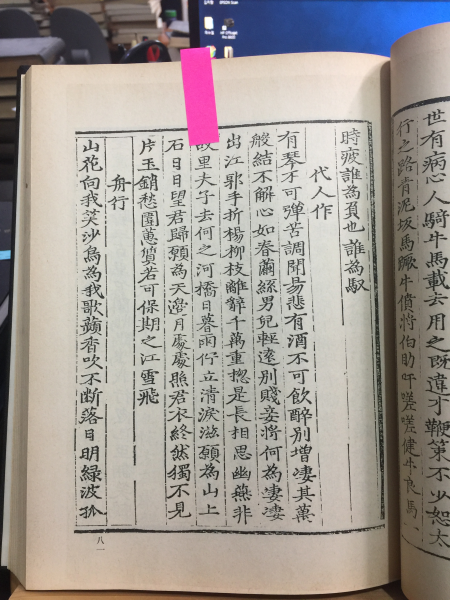 世有病心人騎牛馬載去用之旣違才鞭策不少恕太
行之路靑泥坂馬蹶牛僨將伯助吁嗟嗟健牛良馬
時疲誰為負也誰為馭
代人作
有琴不可彈苦調聞易悲有酒不可飮醉別增凄其萬
般結不解心如眷繭絲男兒輕遠別賤妾將何為凄凄
出江郭手折楊柳枝離辭千萬重揔是長相思幽燕非
故里夫子去何之河橋日暮閒佇立淸淚滋願為山上
石日日望君歸願為天邊月處處照君衣終然獨不見
片玉銷愁圍蕙質若可保期之江雪飛
舟行
山花向我笑沙鳥為我歌蘋香吹不斷落日明綠波孤
八一